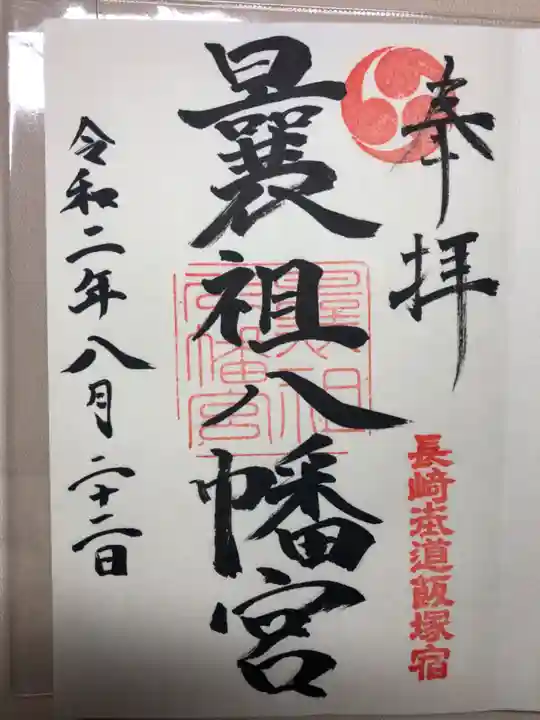 奉拝
長崎街道飯塚宿
曩祖八幡宮
曩祖八幡宮
令和二年八月二十二日